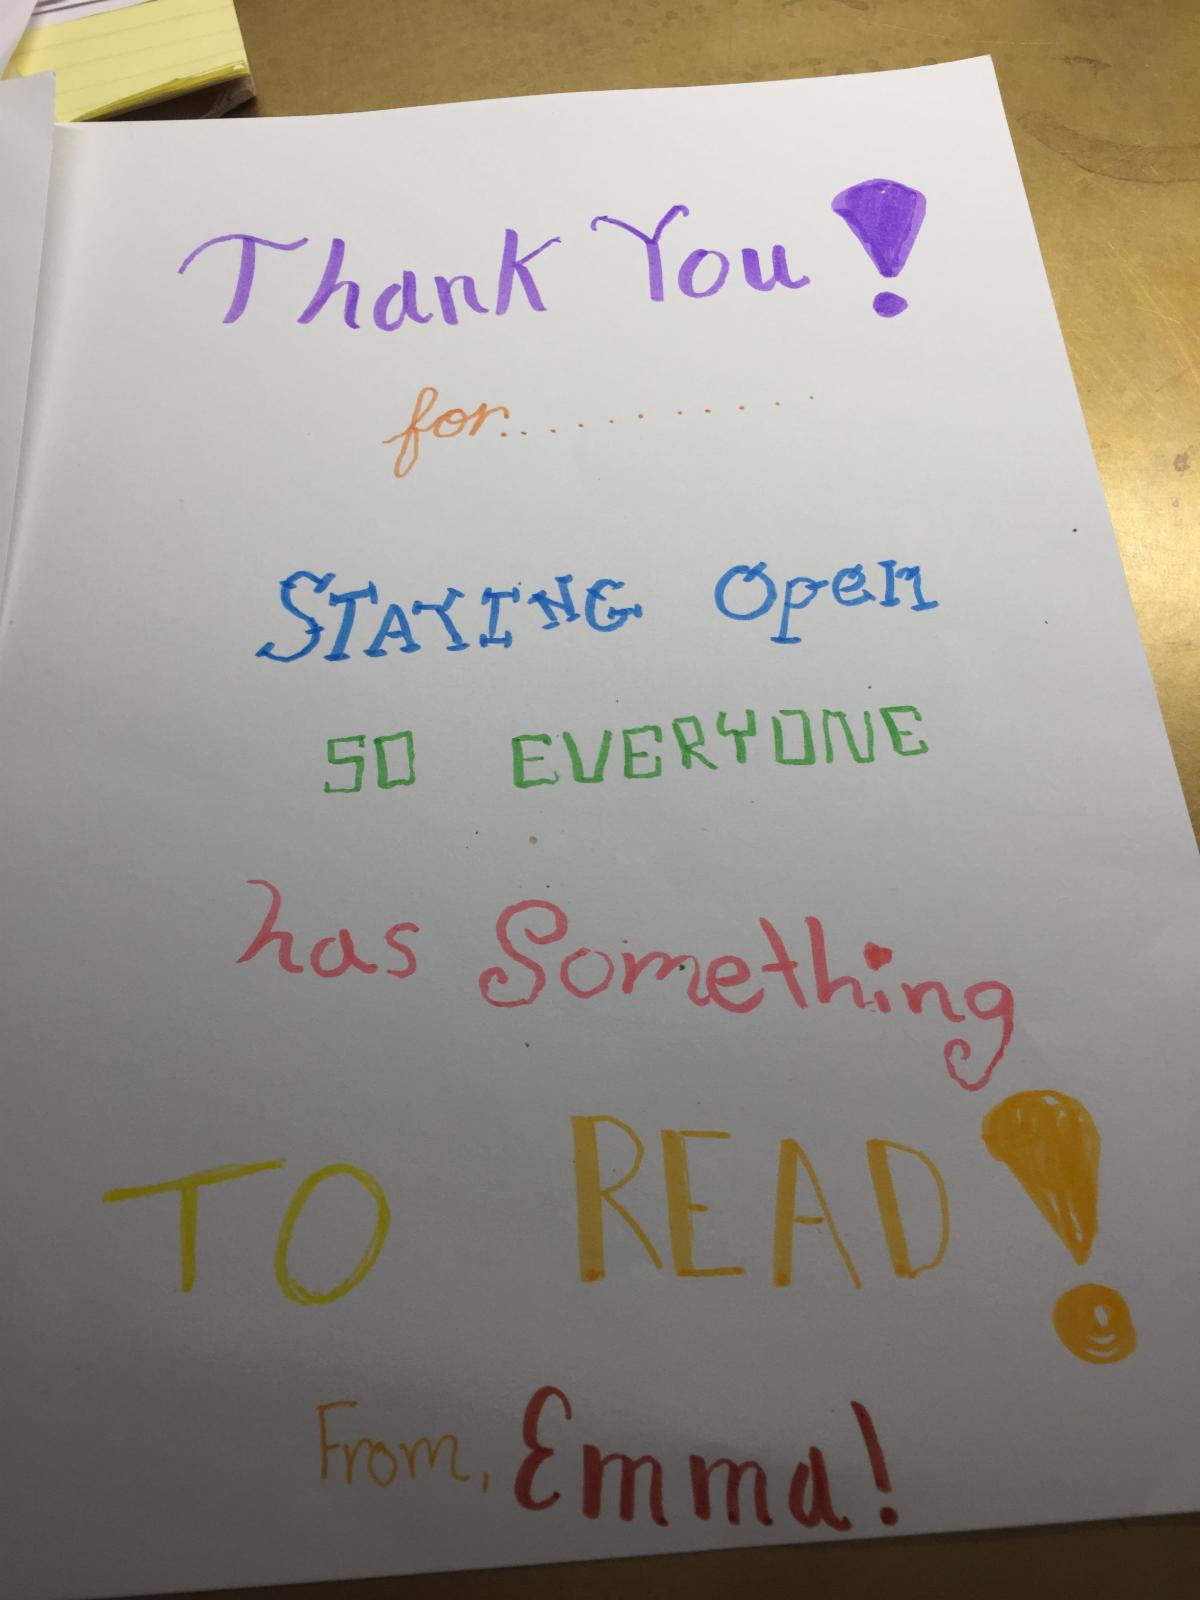 Thank You!
for..........
STAYING Open
SO EVERYONE
has Something
TO READ!
From, Emma!